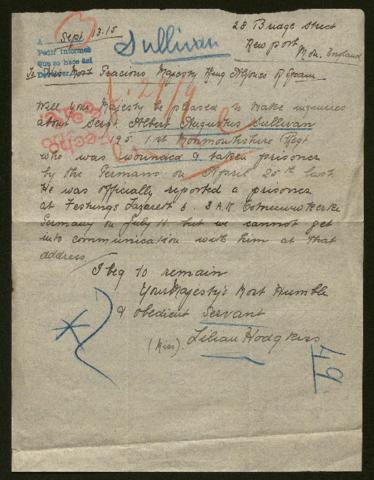 28 Bridge Street
Newport
Mon. England
Sept 13.15
Sullivan
Pedir informes
que se hace así
To His Most Gracious Majesty King Alfonso of Spain
Will your Majesty be pleased to make inquiries
about Sergt Albert Augustus Sullivan
1st Monmouthshire Regt
who was wounded & taken prisoner
by the Germans on April 25th last
He was officially reported a prisoner
at Festungs Lazarett 6
Germany on July 11 but we cannot get
into communication with him at that
address.
I beg to remain
Your Majesty's Most Humble
& obedient Servant
(Miss) Lilian Hodgkiss
49